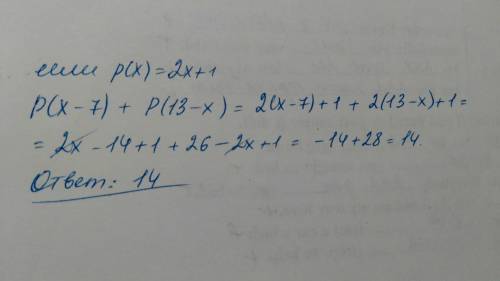 если p(x) = 2x+1
P(x-7) + P(13-x) = 2(x-7)+1 + 2(13-x)+1 =
= 2x -14+1 + 26 - 2x +1 = -14+28 = 14.
Ответ: 14